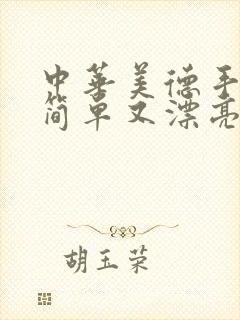 中华美德手
简单又漂亮
胡玉荣